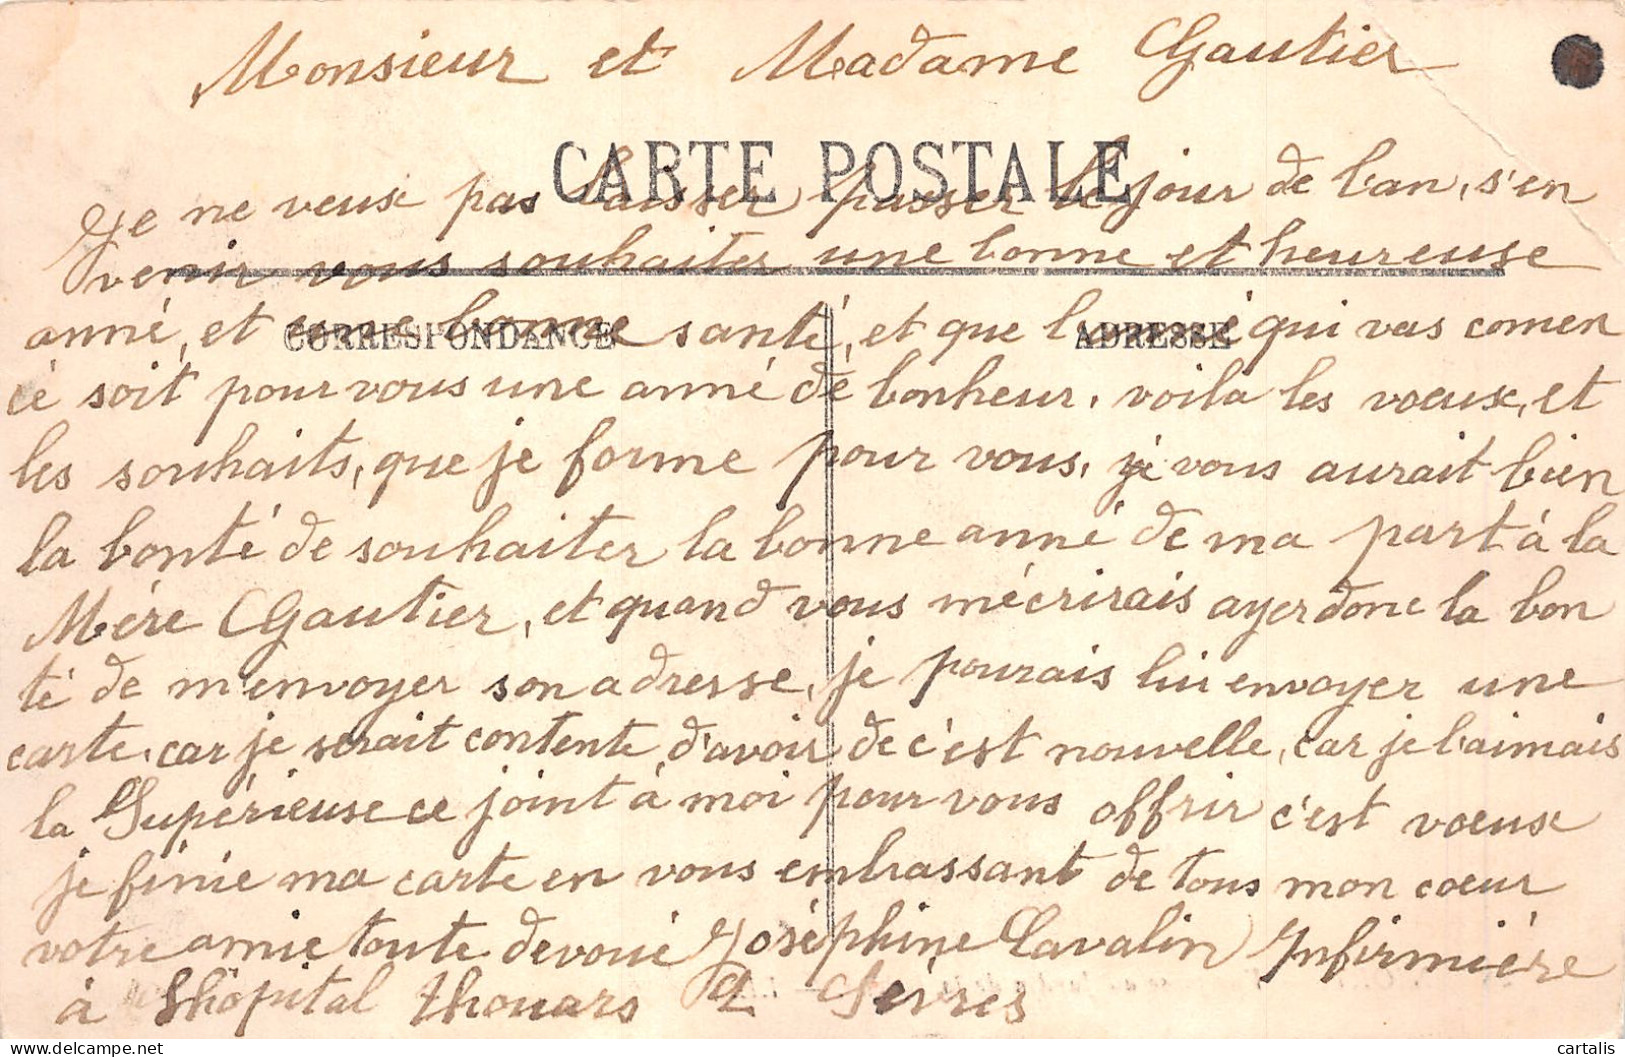 Monsieur et Madame Gautier
CARTE POSTALE
Je ne veux pas laisser passer le jour de l'an, s'en
venir vous souhaiter une bonne et heureuse
CORRESPONDANCE
ADRESSE
anné, et une bonne santé, et que l'anné qui vas comen
cé soit pour vous une anné de bonheur, voila les voeux, et
les souhaits, que je forme pour vous, je vous aurait bien
la bonté de souhaiter la bonne anné de ma part à la
Mére Gautier, et quand vous m'écrirais ayer donc la bon
té de m'envoyer son adresse, je pourais lui envoyer une
carte, car je serait contente d'avoir de c'est nouvelle, car je l'aimais
la Supérieuse ce joint à moi pour vous offrir c'est voeux
je finie ma carte en vous embrassant de tous mon coeur
votre amie toute devoué Joséphine Cavalin Infirmiére
à l'hôpital thouars 2 Sévres
cartalis